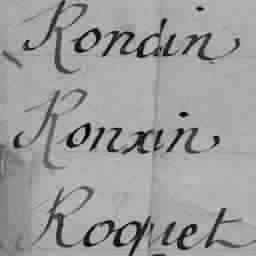 Rondin
Ronxin
Roquet